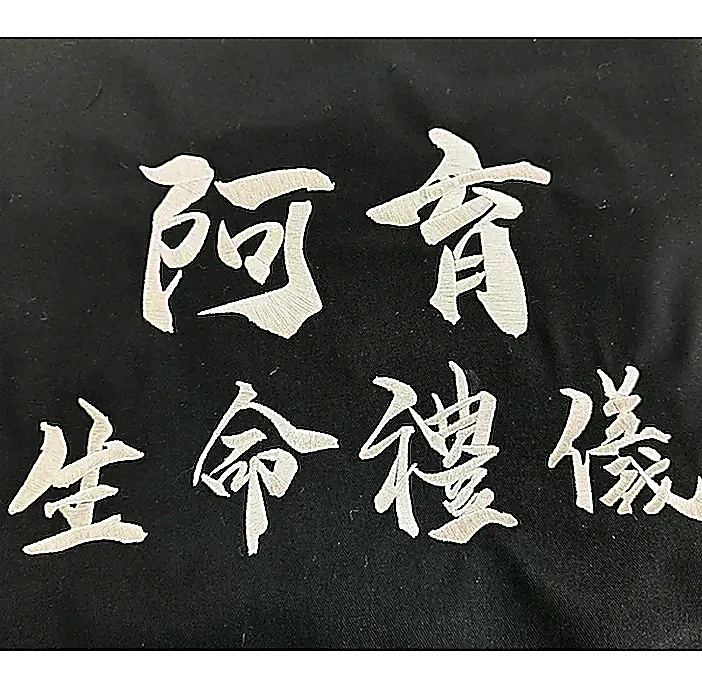 阿育
生命禮儀